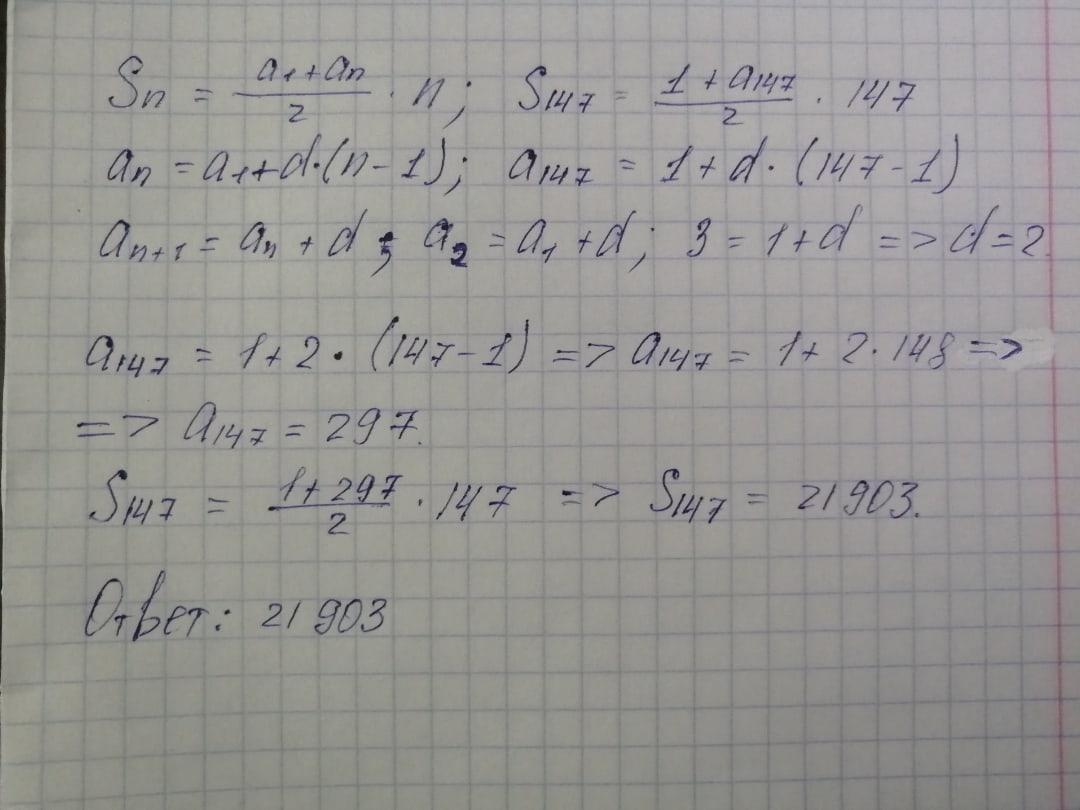 Sn = (a1+an)/2 · n; S147 = (1+a147)/2 · 147
an = a1+d·(n-1); a147 = 1+d·(147-1)
an+1 = an+d; a2 = a1+d; 3 = 1+d => d=2
a147 = 1+2·(147-1) => a147 = 1+2·148 =>
=> a147 = 297.
S147 = (1+297)/2 · 147 => S147 = 21903.
Ответ: 21903